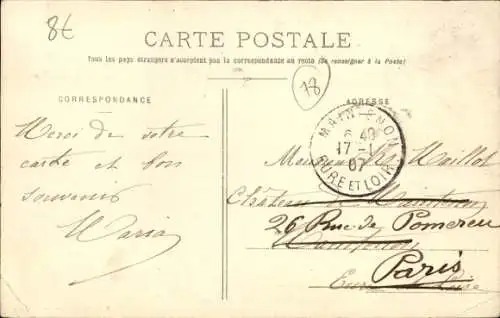 8t
CARTE POSTALE
Tous les pays étrangers n'acceptent pas la correspondance au recto (Se renseigner à la Poste)
18
CORRESPONDANCE
ADRESSE
MAINTENON
6 40
17 -1
07
EURE ET LOIR
Merci de votre
carte et bon
souvenir
Maria
Monsieur Maillot
Château de Maintenon
26 Rue de Pomereu
Maintenon
Paris
Eure et Loire